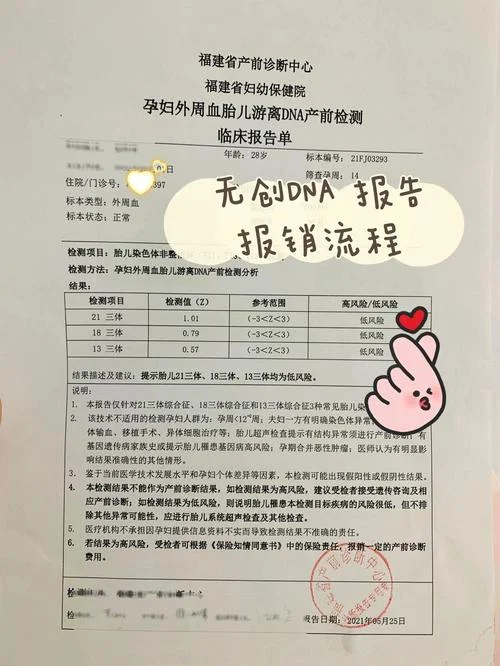 福建省产前诊断中心
福建省妇幼保健院
孕妇外周血胎儿游离DNA产前检测
临床报告单
年龄：28岁 标本编号：21FJ03293
日
住院/门诊号： 397 筛查孕周：14
标本类型：外周血
标本状态：正常
无创DNA 报告
报销流程
检测项目：胎儿染色体非整
检测方法：孕妇外周血胎儿游离DNA产前检测分析
结果：
检测项目 检测值（Z） 参考范围 高风险/低风险
21 三体 1.01 （-3＜Z＜3） 低风险
18 三体 0.79 （-3＜Z＜3） 低风险
13 三体 0.57 （-3＜Z＜3） 低风险
结果描述及建议：提示胎儿21三体、18三体、13三体均为低风险。
说明：
1. 本报告仅针对21三体综合征、18三体综合征和13三体综合征3种常见胎儿染
2. 该技术不适用的检测孕妇人群为：孕周<12⁺⁰周；夫妇一方有明确染色体异常
体输血、移植手术、异体细胞治疗等；胎儿超声检查提示有结构异常须进行产前诊断；有
基因遗传病家族史或提示胎儿罹患基因病高风险；孕期合并恶性肿瘤；医师认为有明显影
响结果准确性的其他情形。
3. 鉴于当前医学技术发展水平和孕妇个体差异等因素，本检测可能出现假阳性或假阴性结果。
4. 本检测结果不能作为产前诊断结果，如检测结果为高风险，建议受检者接受遗传咨询及相
应产前诊断；如检测结果为低风险，则说明胎儿罹患本检测目标疾病的风险很低，但不排
除其他异常可能性，应进行胎儿系统超声检查及其他检查。
5. 医疗机构不承担因孕妇提供信息资料不实而导致检测结果不准确的责任。
6. 若结果为高风险，受检者可根据《保险知情同意书》中的保险责任，报销一定的产前诊断
费用。
检测
断中心
检测
报告日期：2021年05月25日